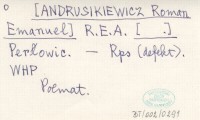 [ANDRUSIKIEWICZ Roman
Emanuel] R.E.A. [ .]
Perłowic. — Rps (defekt).
WHP
Poemat.